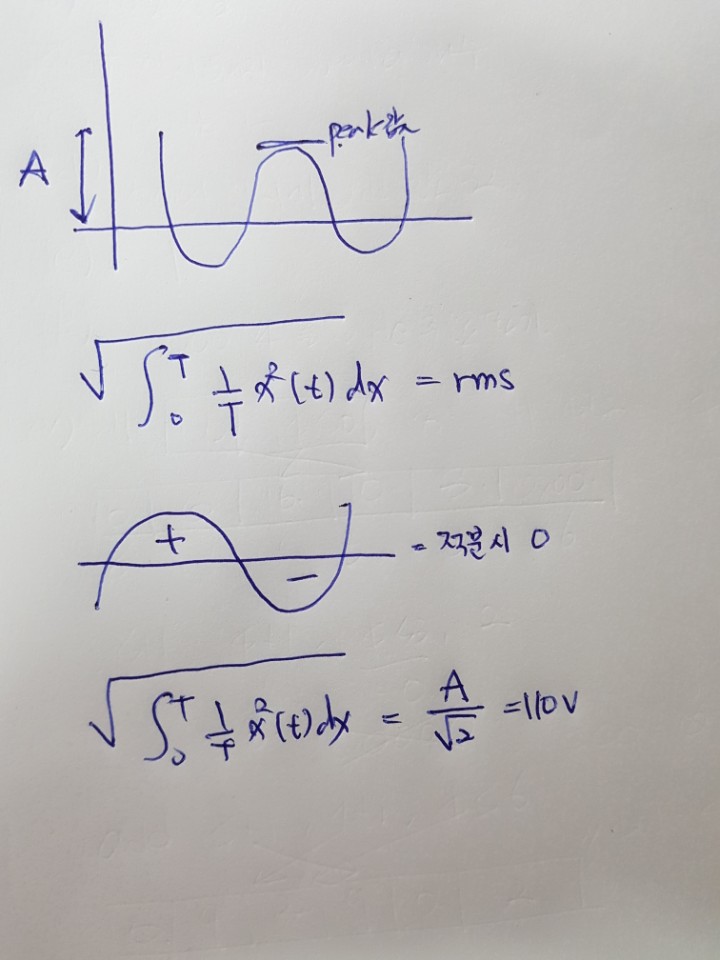 peak값
A
√ ∫₀ᵀ 1/T x²(t) dx = rms
+
- = 적분시 0
√ ∫₀ᵀ 1/T x²(t) dx = A/√2 = 110V